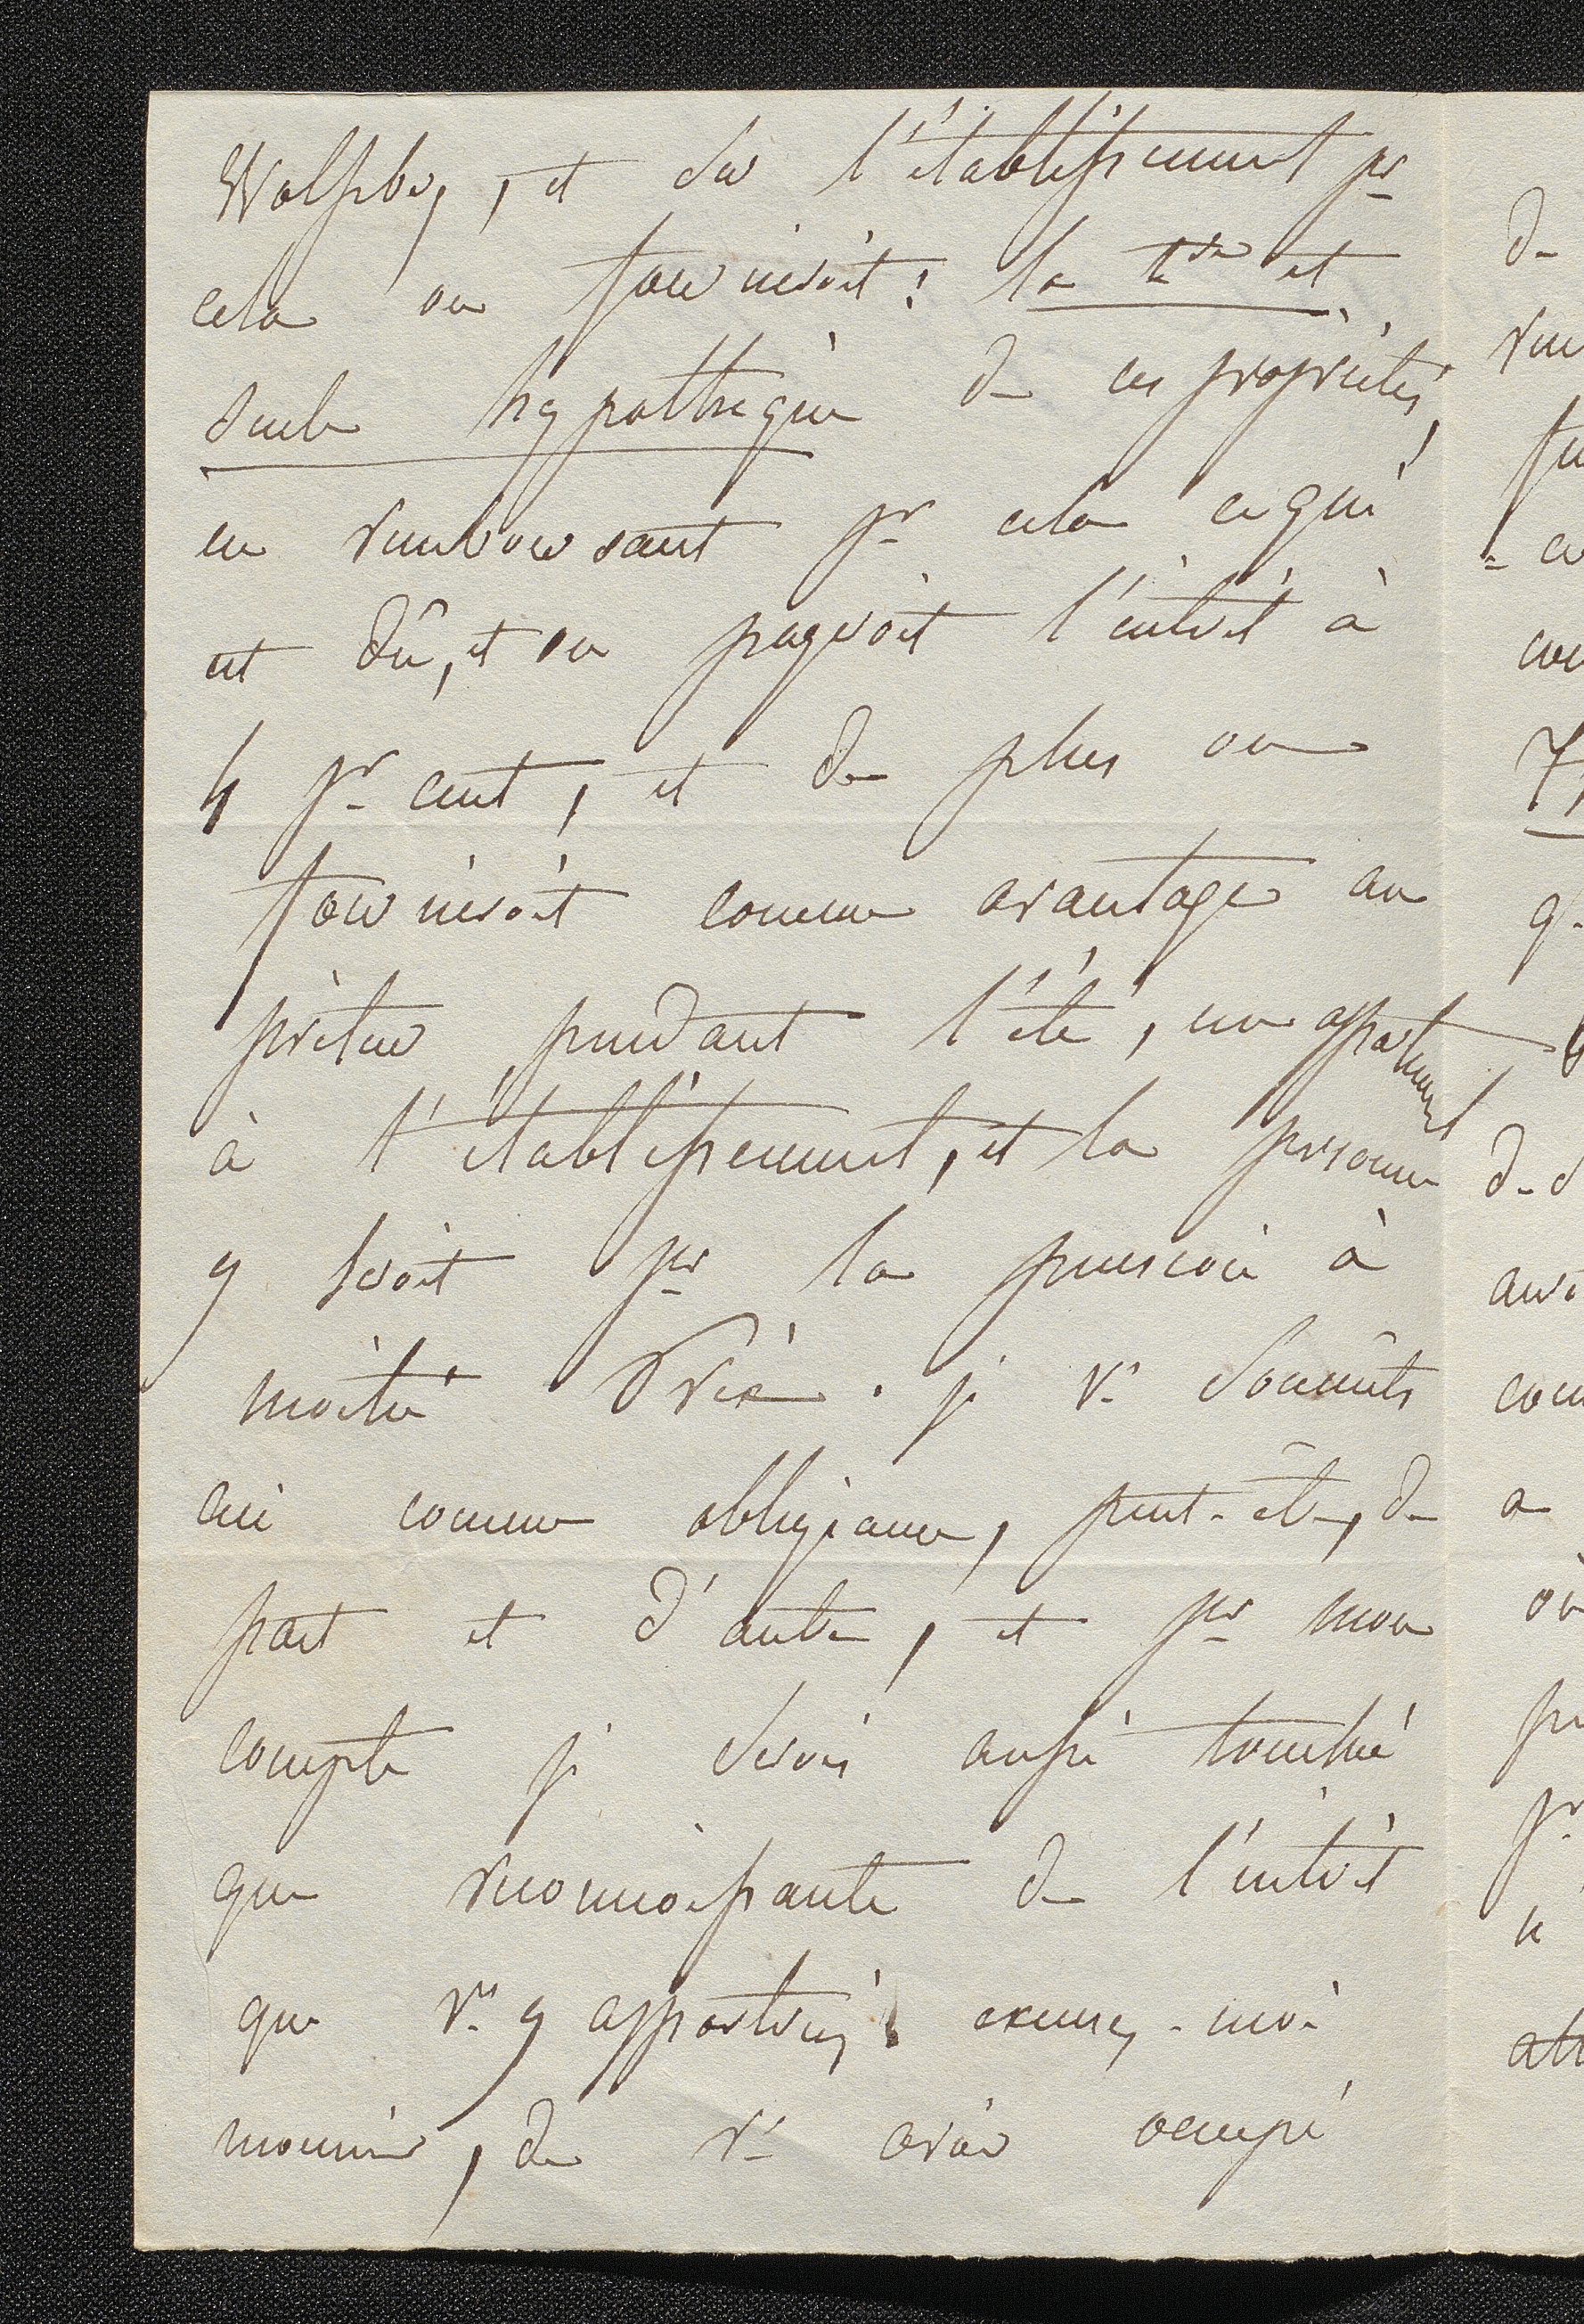 Wolfsberg, et sur l'établissement pr
cela on fourniroit: la 1re et
seule hypothèque de ces propriétés,
en remboursant pr cela ce qui
est dû, et on payeroit l'intérêt à
4 pr cent, et de plus on
fourniroit comme avantage au
prêteur pendant l'été, un appartement
à l'établissement, et la personne
y seroit pr la pension à
moitié Prix. je vs soumets
ceci comme obligeance, peut-être, de
part et d'autre, et pr mon
compte je serois aussi touchée
que reconnoissante de l'intérêt
que vs y apporteriez excusez-moi
monsieur, de vs avoir occupé